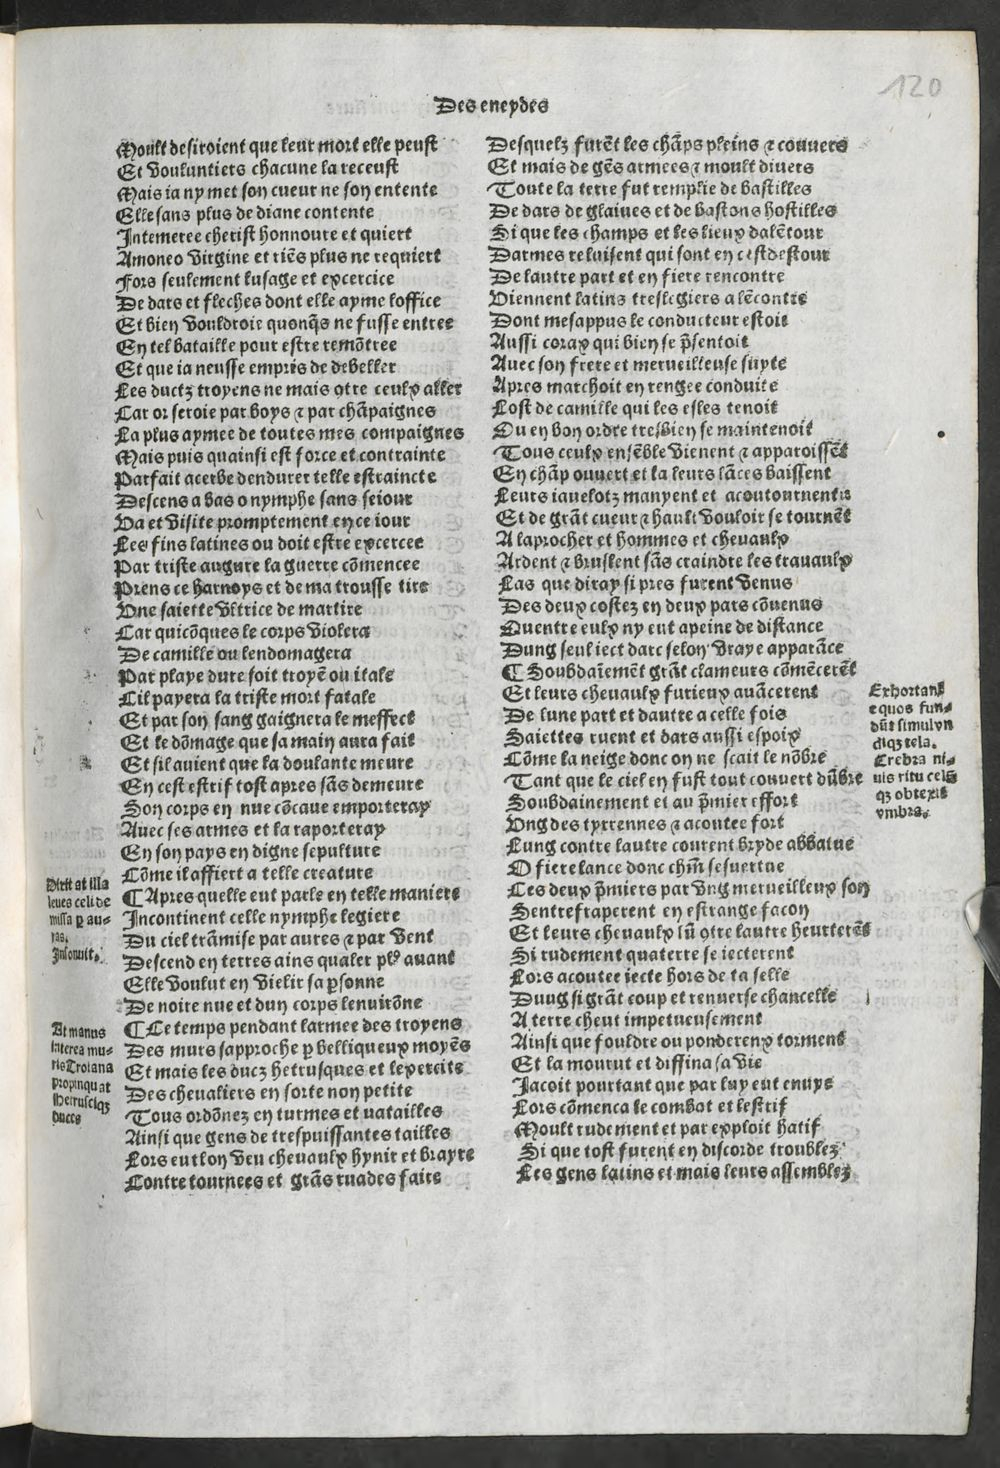 120
Des eneydes
Moult desiroient que leur mort elle peust
Et vouluntiers chacune la receust
Mais ia ny met son cueur ne son entente
Elle sans plus de diane contente
Intemeree cherist honnoure et quiert
Amoneo virgine et riẽs plus ne requiert
Fors seulement lusage et excercice
De dars et fleches dont elle ayme loffice
Et bien vouldroie quonq̃s ne fusse entree
En tel bataille pour estre remõtree
Et que ia neusse empris de debeller
Les ductz troyens ne mais ꝯtre ceulx aller
Car or seroie par boys ⁊ par chãpaignes
La plus aymee de toutes mes compaignes
Mais puis quainsi est force et contrainte
Parfait acerbe dendurer telle estraincte
Descens a bas o nymphe sans seiour
Va et visite promptement en ce iour
Les fins latines ou doit estre excercee
Par triste augure la guerre cõmencee
Prens ce harnoys et de ma trousse tire
Vne saiette vltrice de martire
Car quicõques le corps violera
De camille ou lendomagera
Par playe dure soit troyẽ ou itale
Cil payera la triste mort fatale
Et par son sang gaignera le meffect
Et le dõmage que sa main aura fait
Et sil auient que la doulante meure
En cest estrif tost apres sãs demeure
Son corps en nue cõcaue emporteray
Auec ses armes et la raporteray
En son pays en digne sepulture
Cõme il affiert a telle creature
¶ Apres quelle eut parle en telle maniere
Incontinent celle nymphe legiere
Du ciel trãmise par aures ⁊ par vent
Descend en terres ains qualer plꝰ auant
Elle voulut en vielir sa ꝑsonne
De noire nue et dun corps lenuirõne
¶ Ce temps pendant larmee des troyens
Des murs sapproche ꝑ belliqueux moyẽs
Et mais les ducz hetrusques et lexercite
Des cheualiers en sorte non petite
Tous ordõnez en turmes et batailles
Ainsi que gens de trespuissantes tailles
Lors eut lon veu cheuaulx hynir et brayre
Contre tournees et grãs ruades faire
Dixit at illa
leues celi de
missa ꝑ au-
ras.
Insonuit.
At manus
interea mu-
ris Troiana
propinquat
Hetrusciqꝫ
duces
Desquelz furẽt les chãps pleins ⁊ couuers
Et mais de gẽs armees ⁊ moult diuers
Toute la terre fut remplie de bastilles
De dars de glaiues et de bastons hostilles
Si que les champs et les lieux dalẽtour
Darmes reluisent qui sont en cest destour
De lautre part et en fiere rencontre
Viennent latins treslegiers a lẽcontre
Dont mesappus le conducteur estoit
Aussi corax qui bien se p̃sentoit
Auec son frere et merueilleuse suyte
Apres marchoit en rengee conduite
Lost de camille qui les esles tenoit
Ou en bon ordre tresbien se maintenoit
Tous ceulx ensẽble vienent ⁊ apparoissẽt
En chãp ouuert et la leurs lãces baissent
Leurs iauelotz manyent et acoutournent
Et de grãt cueur ⁊ hault vouloir se tournẽt
A laprocher et hommes et cheuaulx
Ardent ⁊ bruslent sãs craindre les trauaulx
Las que diray si pres furent venus
Des deux costez en deux pars cõuenus
Quentre eulx ny eut apeine de distance
Dung seul iect darc selon vraye apparãce
¶ Soubdaĩemẽt grãt clameurs cõmẽcerẽt
Et leurs cheuaulx furieux auãcerent
De lune part et dautre a celle fois
Saiettes ruent et dars aussi espoix
Cõme la neige donc on ne scait le nõbre
Tant que le ciel en fust tout couuert dũbre
Soubdainement et au p̃mier effort
Vng des tyrrennes ⁊ acoutee fort
Lung contre lautre courent bryde abbatue
O fiere lance donc chm̃ sesuertue
Ces deux p̃miers par vng merueilleux son
Sentrefraperent en estrange facon
Et leurs cheuaulx lũ ꝯtre lautre heurterẽt
Si rudement quaterre se iecterent
Lors acoutee iecte hors de sa selle
Dung si grãt coup et renuerse chancelle
A terre cheut impetueusement
Ainsi que fouldre ou pondereux torment
Et la mourut et diffina sa vie
Iacoit pourtant que par luy eut enuye
Lors cõmenca le combat et lestrif
Moult rudement et par exploit hatif
Si que tost furent en discorde troublez
Les gens latins et mais leurs assemblez
Exhortant
equos fun-
dũt simul vn
diqꝫ tela.
Crebra ni-
uis ritu celũ
qꝫ obtexit
vmbra.